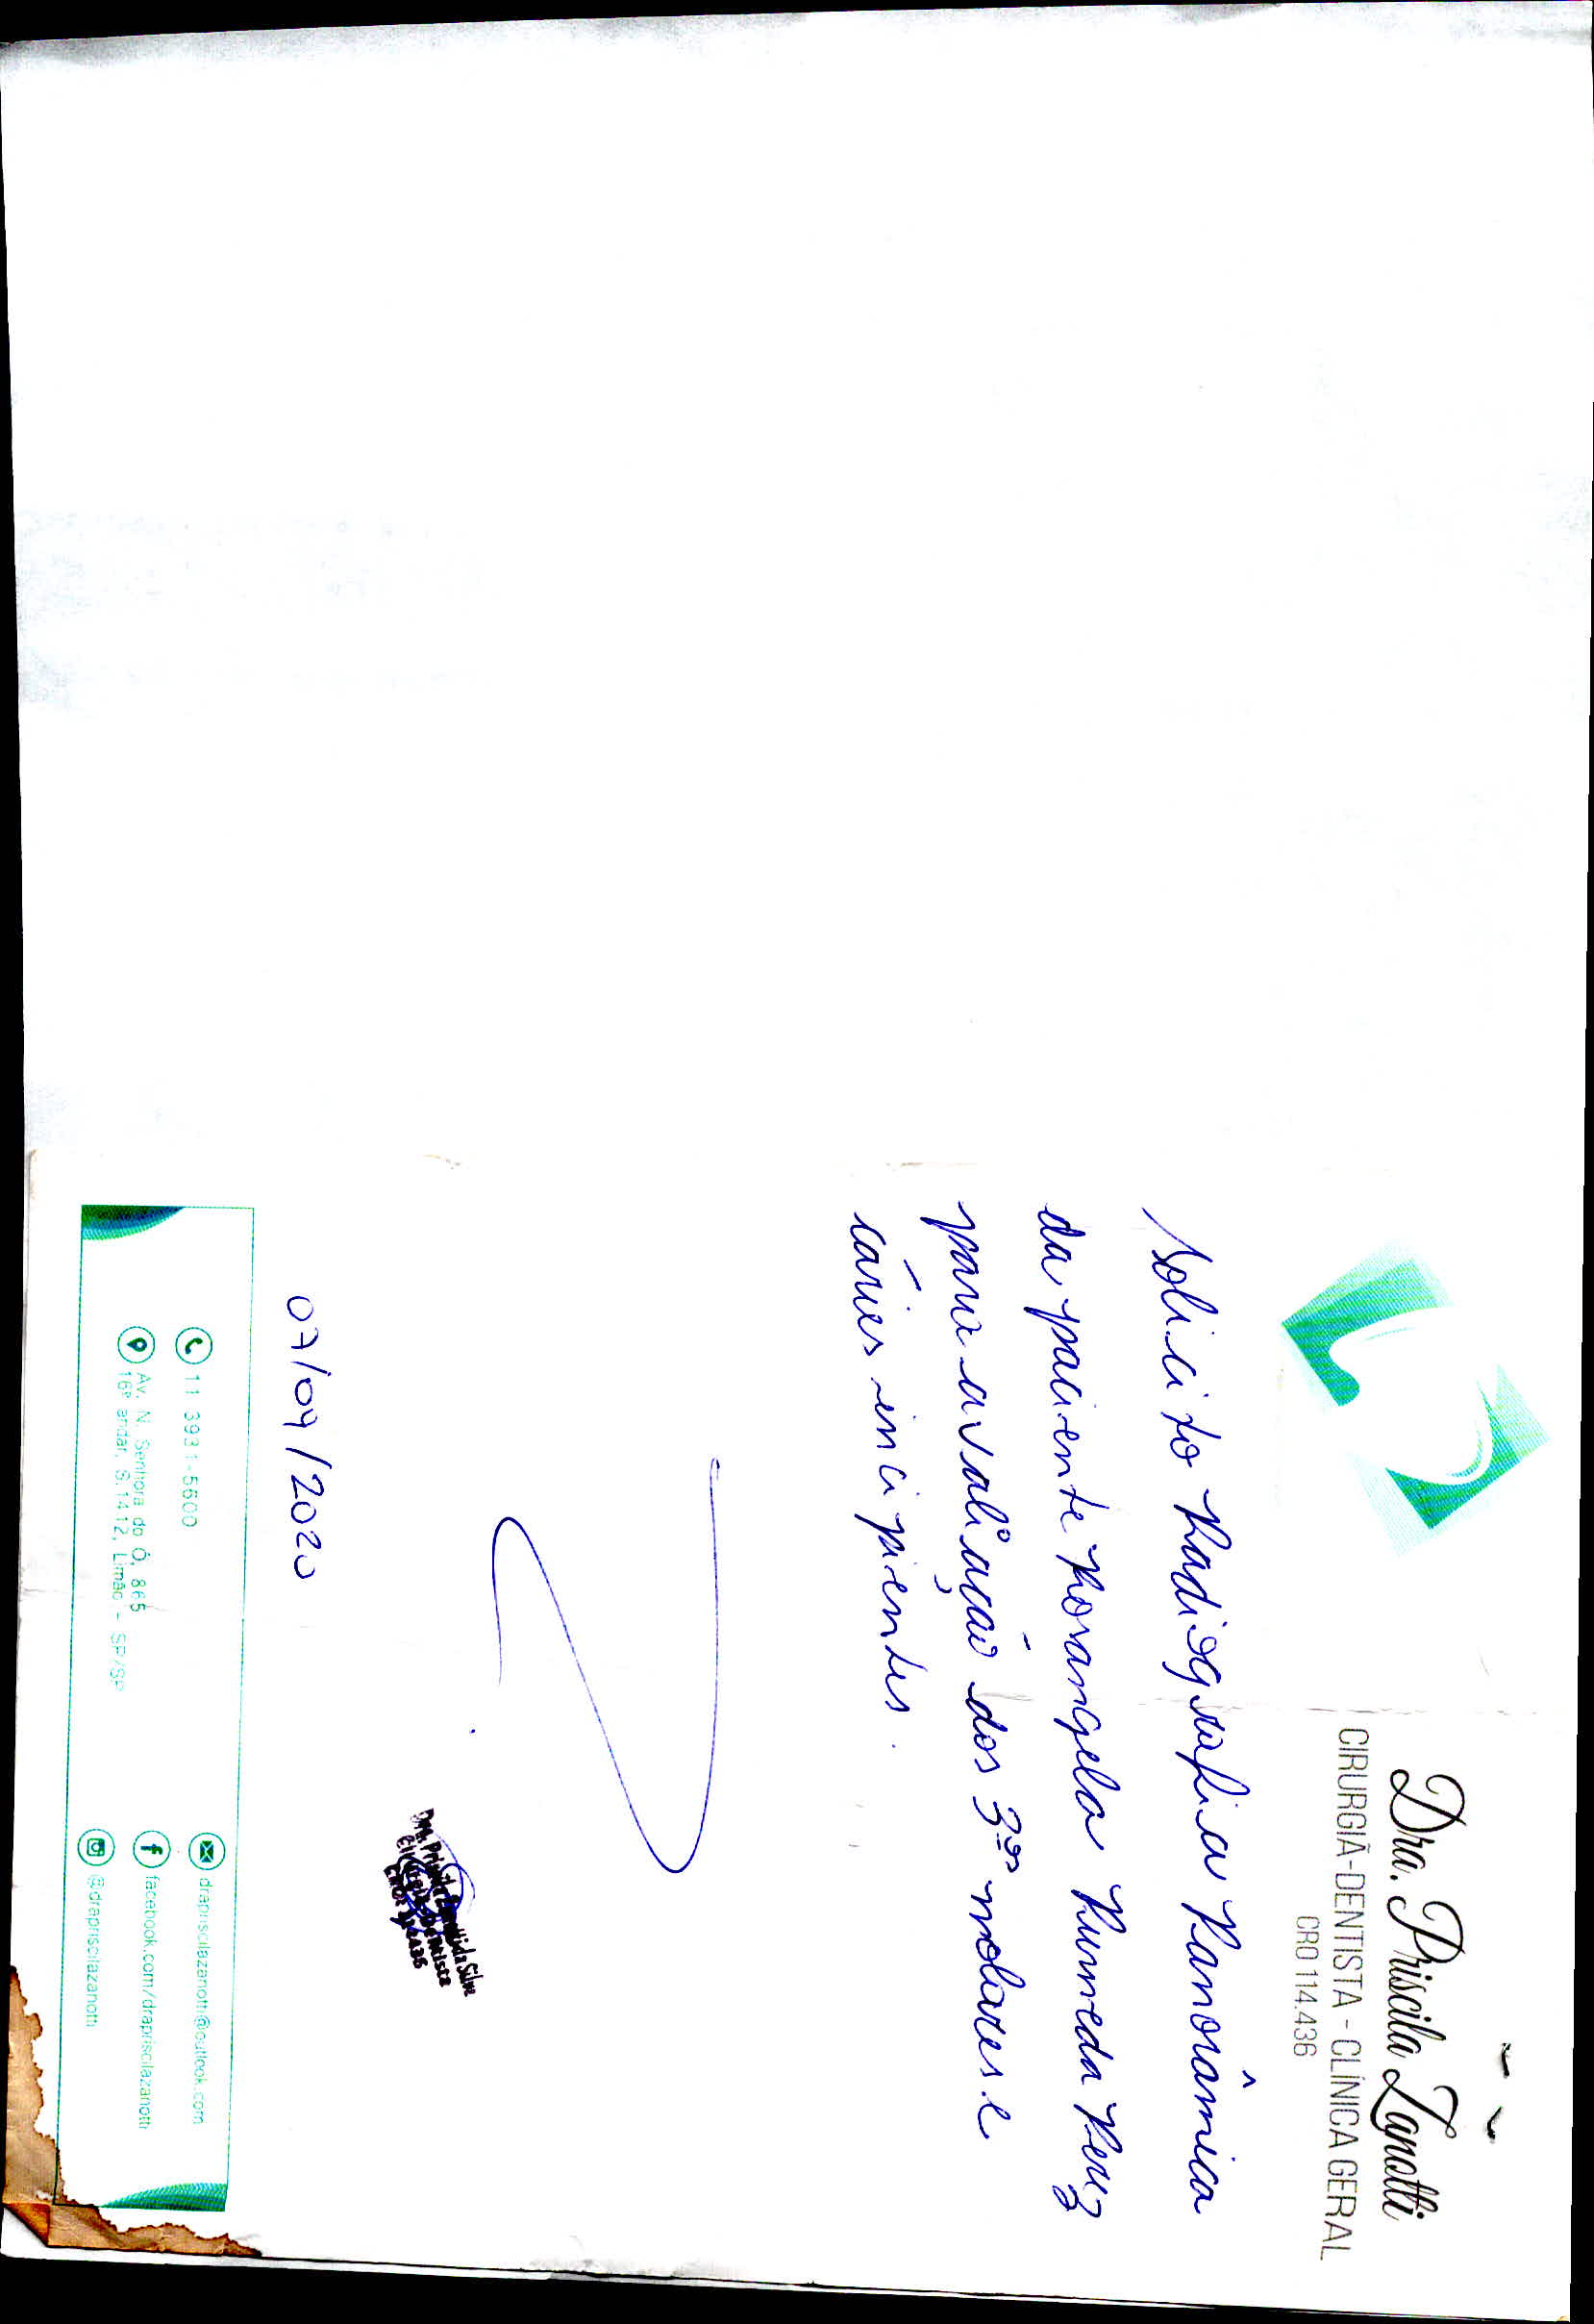 Dra. Priscila Zanotti
CIRURGIÃ-DENTISTA - CLÍNICA GERAL
CRO 114.436
Solicito Radiografia Panorâmica
da paciente Rosangela Perez
para avaliação dos 3ºs molares e
cáries incipientes.
07/04/2020
11 3931-5600
Av. N. Senhora do Ó, 865
16º andar, S.1412, Limão - SP/SP
drapriscilazanotti@outlook.com
facebook.com/drapriscilazanotti
@drapriscilazanotti